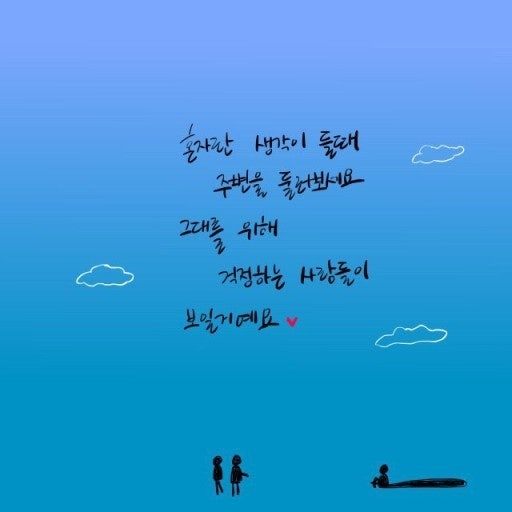 혼자란 생각이 들때
주변을 둘러보세요
그대를 위해
걱정하는 사람들이
보일거예요